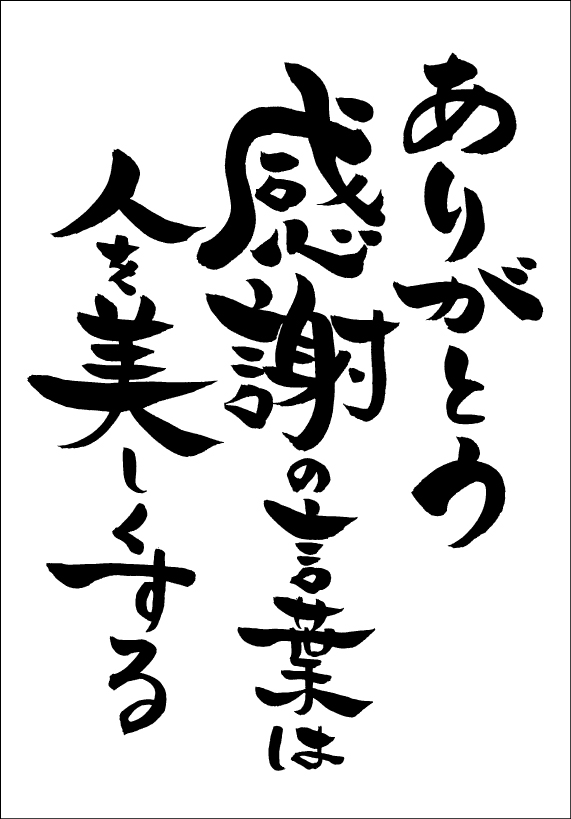 ありがとう
感謝の言葉は
人を美しくする